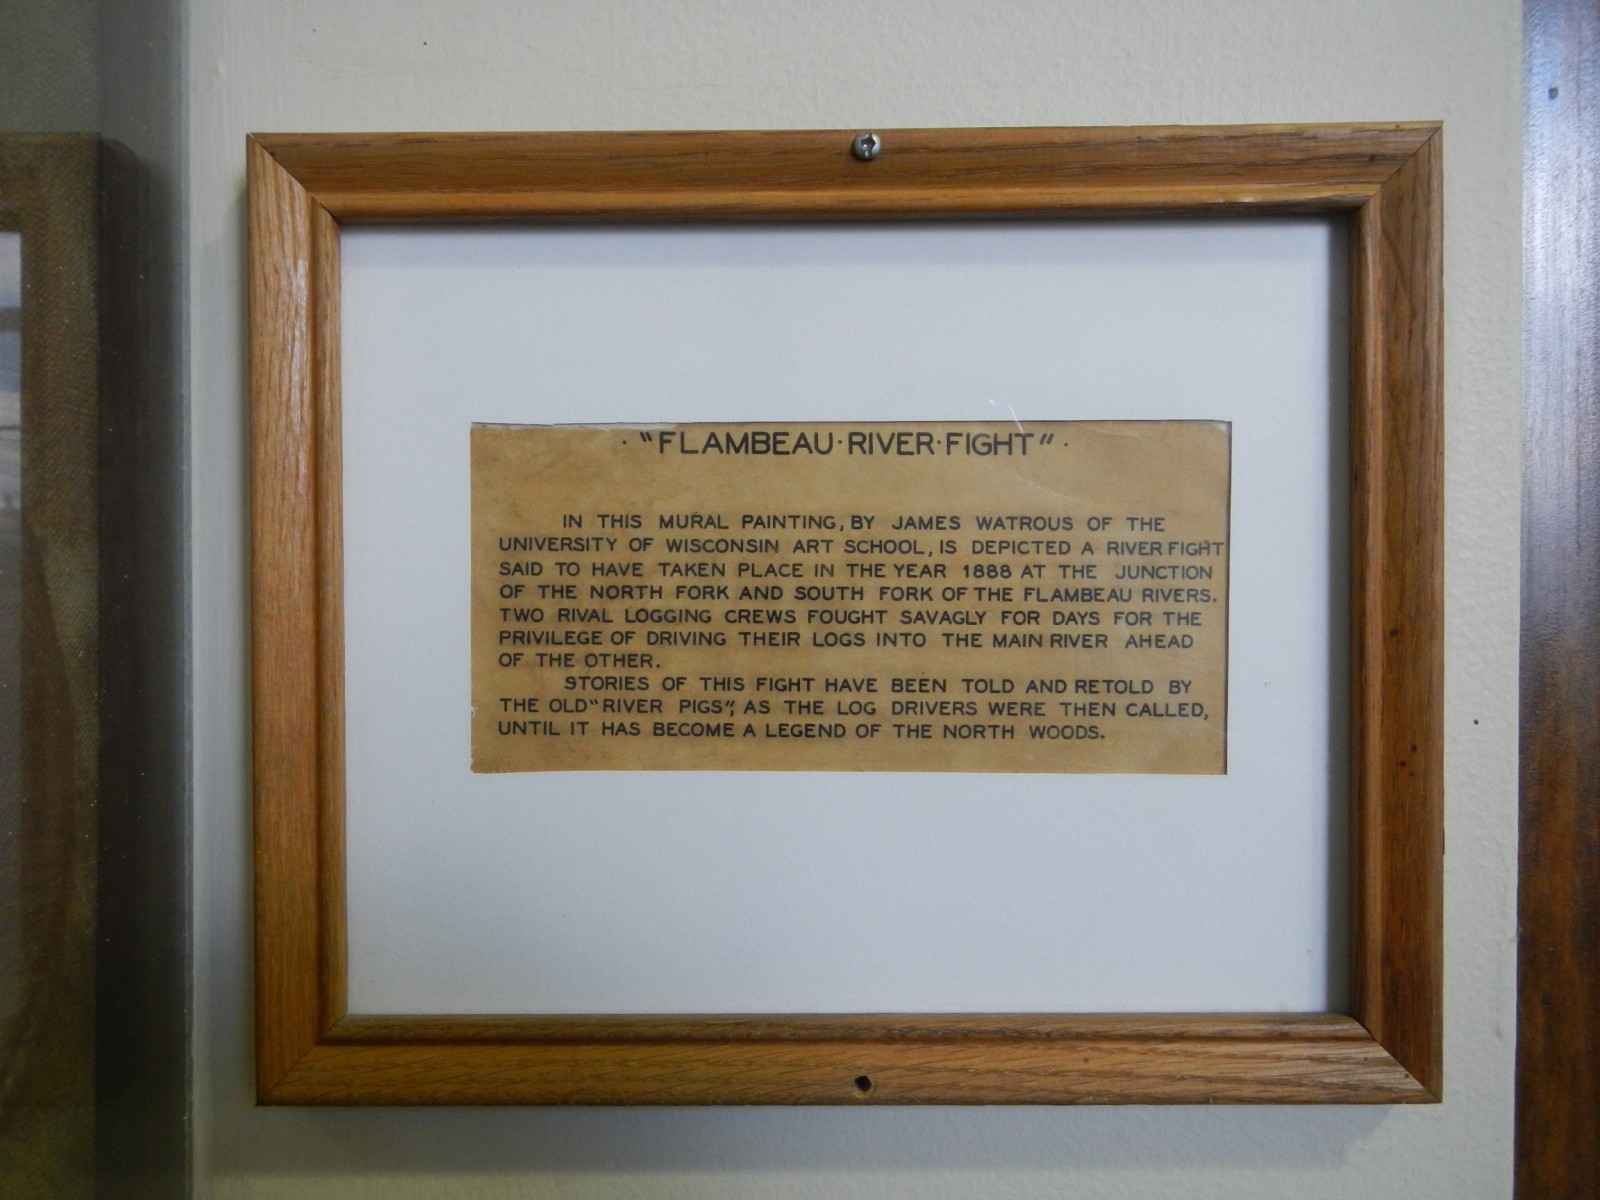 · "FLAMBEAU·RIVER·FIGHT" ·
IN THIS MURAL PAINTING, BY JAMES WATROUS OF THE
UNIVERSITY OF WISCONSIN ART SCHOOL, IS DEPICTED A RIVER FIGHT
SAID TO HAVE TAKEN PLACE IN THE YEAR 1888 AT THE JUNCTION
OF THE NORTH FORK AND SOUTH FORK OF THE FLAMBEAU RIVERS.
TWO RIVAL LOGGING CREWS FOUGHT SAVAGLY FOR DAYS FOR THE
PRIVILEGE OF DRIVING THEIR LOGS INTO THE MAIN RIVER AHEAD
OF THE OTHER.
STORIES OF THIS FIGHT HAVE BEEN TOLD AND RETOLD BY
THE OLD "RIVER PIGS", AS THE LOG DRIVERS WERE THEN CALLED,
UNTIL IT HAS BECOME A LEGEND OF THE NORTH WOODS.